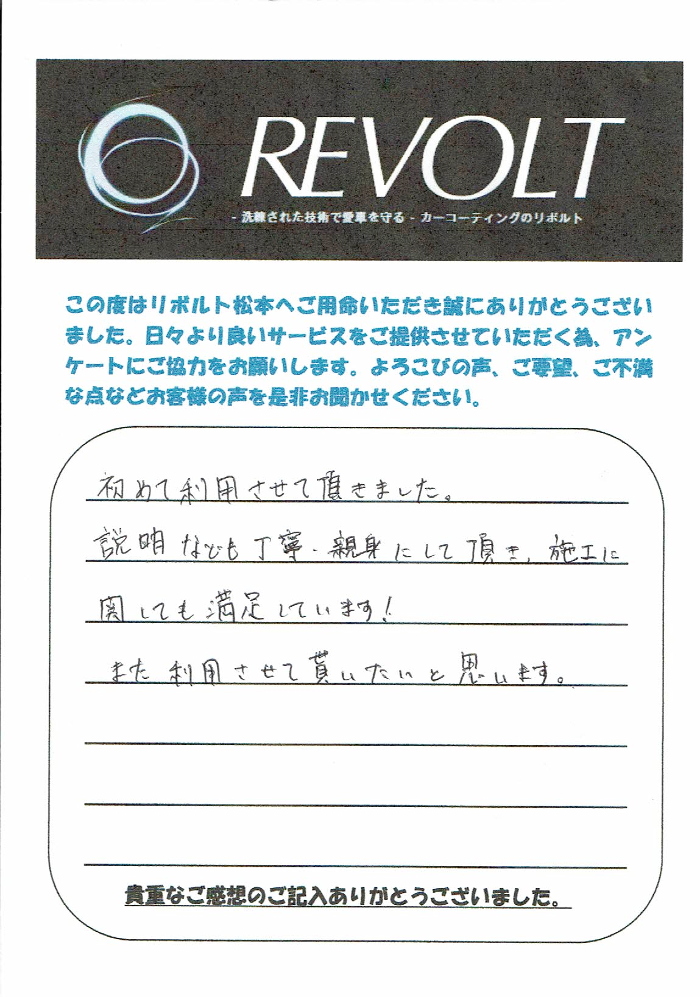 REVOLT
- 洗練された技術で愛車を守る - カーコーティングのリボルト
この度はリボルト松本へご用命いただき誠にありがとうござい
ました。日々より良いサービスをご提供させていただく為、アン
ケートにご協力をお願いします。よろこびの声、ご要望、ご不満
な点などお客様の声を是非お聞かせください。
初めて利用させて頂きました。
説明なども丁寧・親身にして頂き、施工に
関しても満足しています!
また利用させて貰いたいと思います。
貴重なご感想のご記入ありがとうございました。